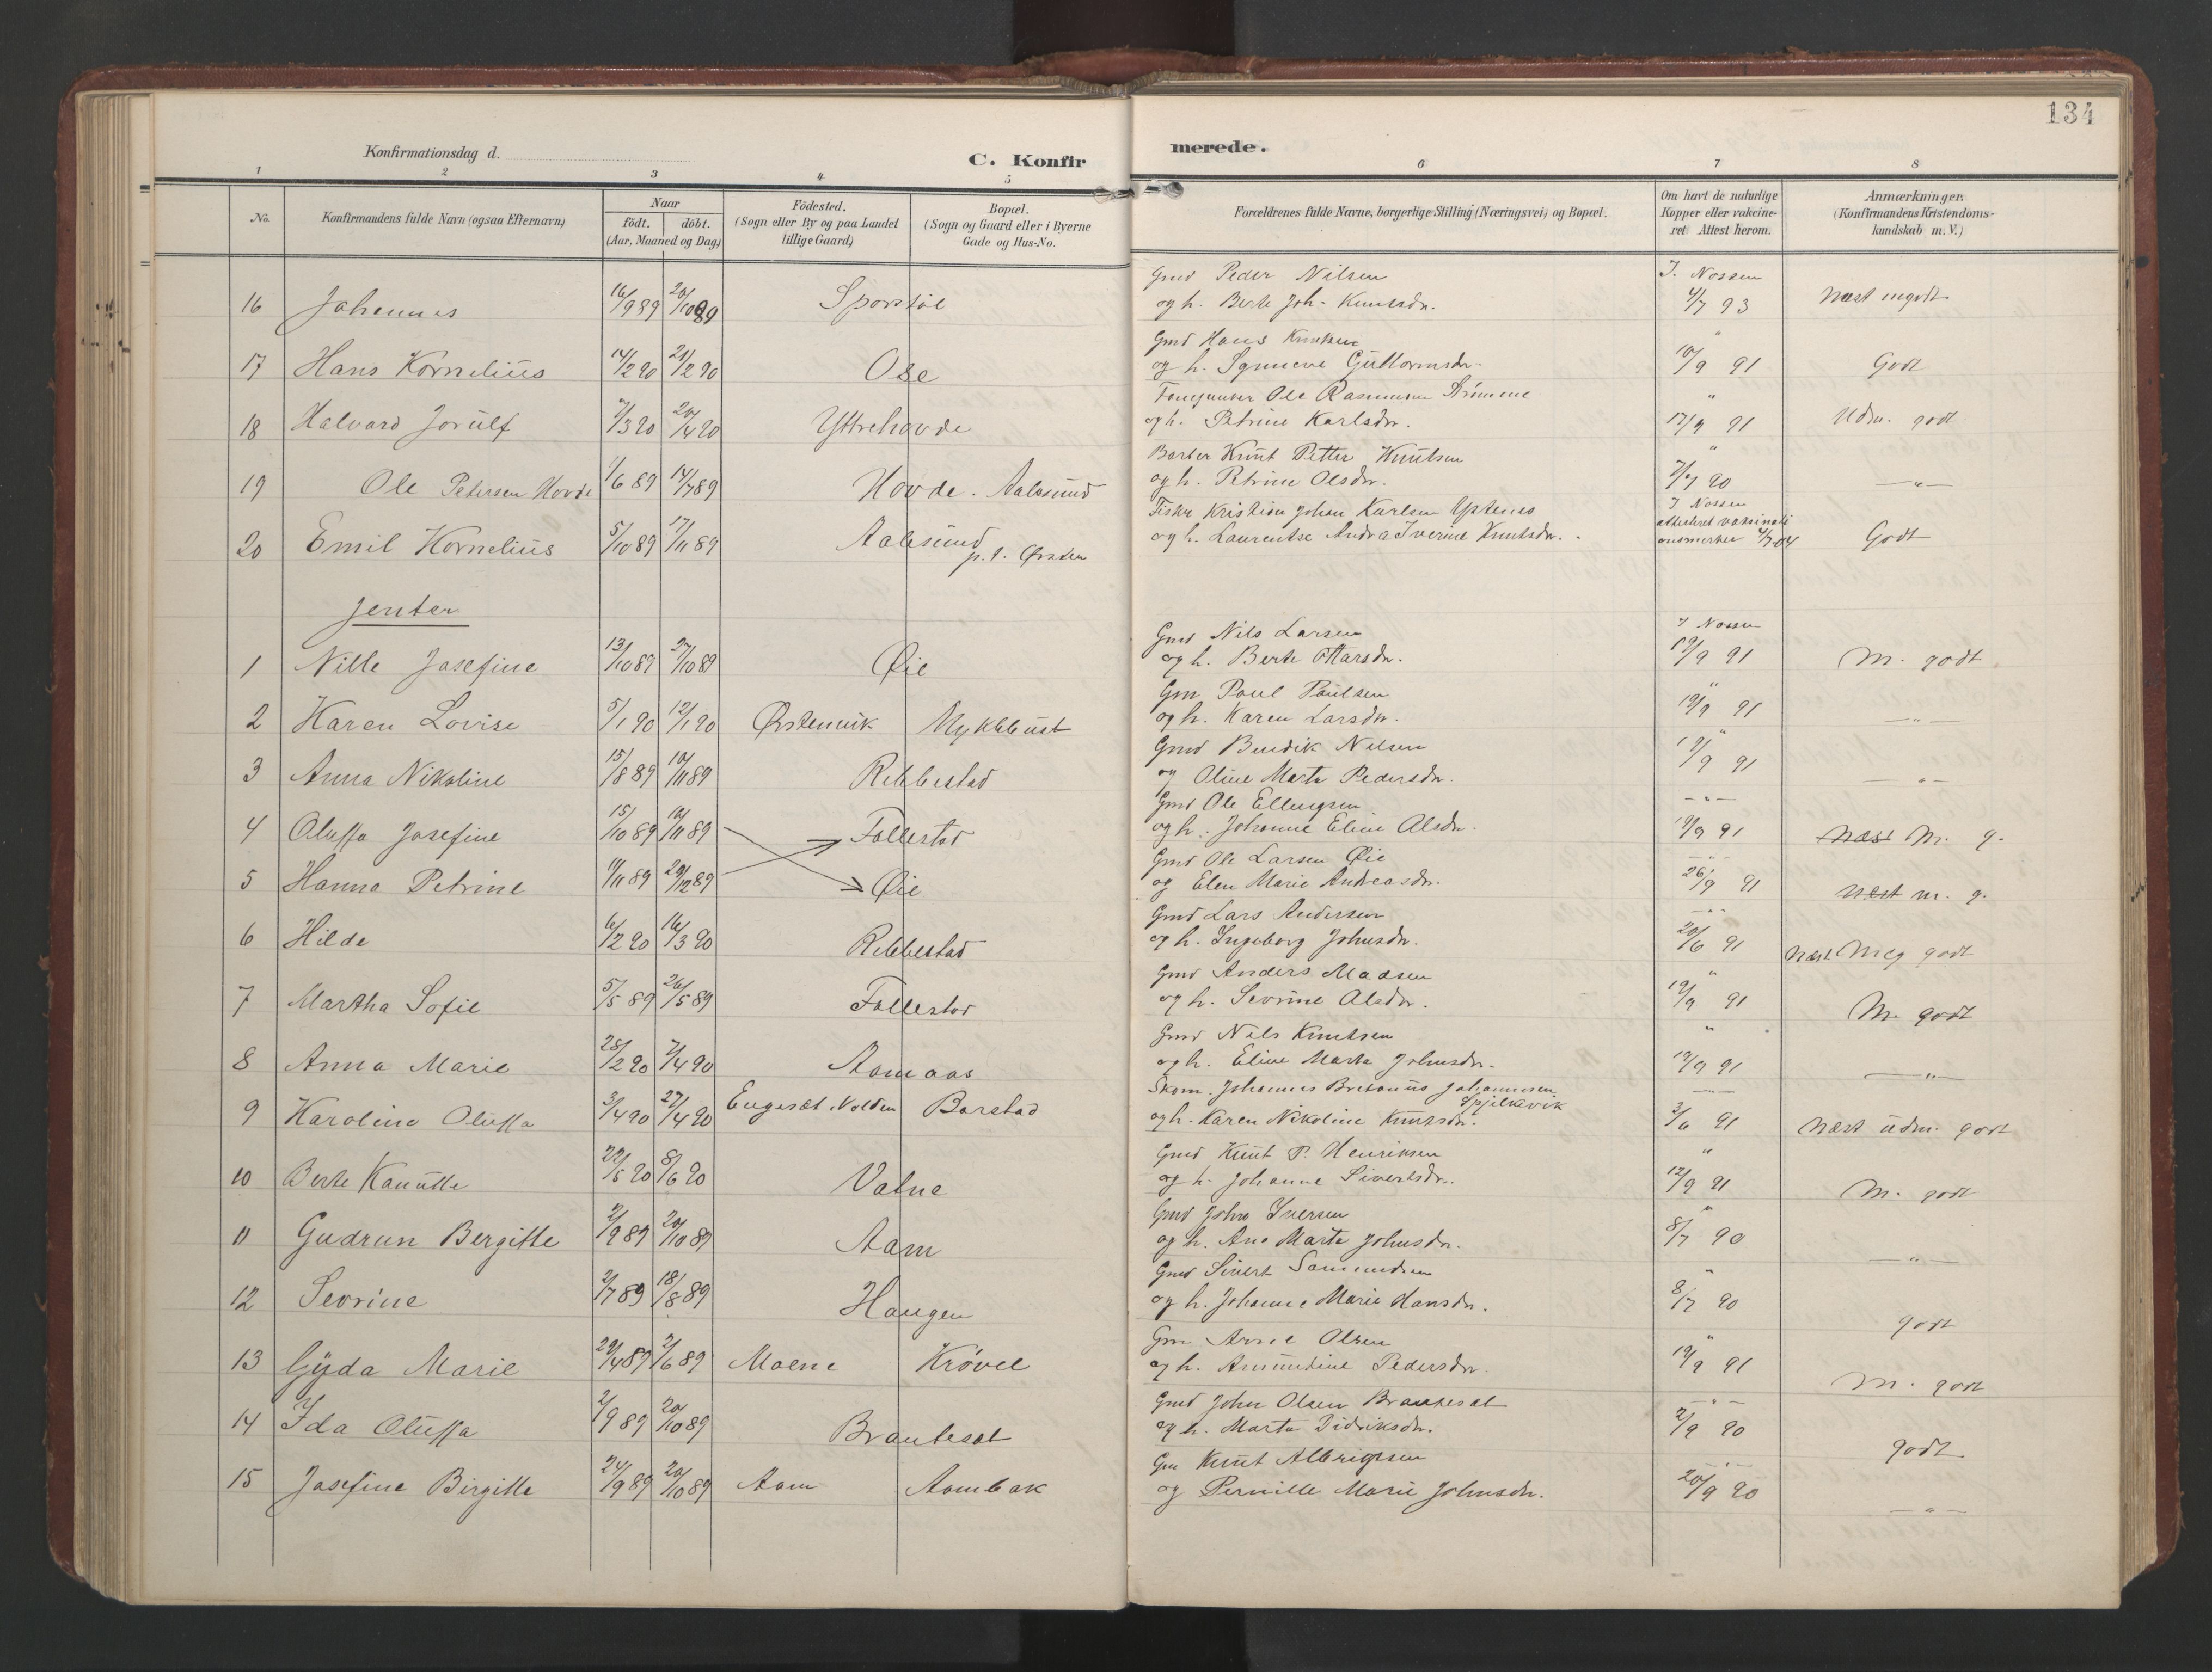 134
Konfirmationsdag d.
C. Konfirmerede.
1 2 3 4 5 6 7 8
No. Konfirmandens fulde Navn (ogsaa Efternavn) Naar født. døbt. (Aar, Maaned og Dag) Fødested. (Sogn eller By og paa Landet tillige Gaard) Bopæl. (Sogn og Gaard eller i Byerne Gade og Hus-No. Forældrenes fulde Navne, borgerlige Stilling (Næringsvei) og Bopæl. Om havt de naturlige Kopper eller vakcineret. Attest herom. Anmærkninger. (Konfirmandens Kristendomskundskab m. V.)
Gmd Peder Nilsen J. Nossen
16 Johannes 16/9 89 20/10 89 Sporstøl og h. Berte Joh. Knutsdr. 4/7 93 Næst megodt
Gmd Hans Knutsen "
17 Hans Kornelius 14/2 90 21/2 90 Ose og h. Synneve Guttormsdr. 10/9 91 Godt
Ole Rasmussen "
18 Halvard Jorulf 7/3 90 20/4 90 Yttrehovde og h. Petrine Karlsdr. 17/9 91 Udm. godt
Barber Knut Petter Knutsen "
19 Ole Petersen Hovde 1/6 89 14/7 89 Hovde. Aalesund og h. Petrine Olsdr. 7/7 90 — " —
Fisker Kristian Johan Karlsen J Nossen
attesteret vaksinati
20 Emil Kornelius 5/10 89 17/11 89 Aalesund og h. Laurentse Andrea Iverine Knutsdr. onsmerker 4/7 04 Godt
p. t. Ørsten
Jenter
Gmd Nils Larsen J Nossen
1 Nille Josefine 13/10 89 27/10 89 Øie og h. Berte Ottarsdr. 19/9 91 M. godt
Gm Poul Paulsen "
2 Karen Lovise 5/1 90 12/1 90 Ørstenvik Myklebust og h. Karen Larsdr. 19/9 91 — " —
Gmd Bendik Nilsen "
3 Anna Nikoline 15/8 89 10/11 89 Rebbestad og Oline Marta Pedersdr. 19/9 91 — " —
Gmd Ole Ellingsen — " —
4 Oluffa Josefine 15/10 89 10/11 89 Follestad og h. Johanne Eline Olsdr. 19/9 91 Næst M. g.
Gmd Ole Larsen Øie — " —
5 Hanna Petrine 11/11 89 29/12 89 Øie og Elen Marie Andreasdr. 26/9 91 næst m. g.
Gmd Lars Andersen — " —
6 Hilde 6/2 90 16/3 90 Rebbestad og h. Ingeborg Johnsdr. 20/6 91 Næst Meg godt
Gmd Anders Madsen "
7 Martha Sofie 5/5 89 26/5 89 Follestad og h. Sevrine Olsdr. 19/9 91 M. godt
Gmd Nils Knutsen "
8 Anna Marie 28/2 90 7/4 90 Aamaas og h. Eline Marta Johnsdr. 19/9 91 — " —
Skom. Johannes Johannesen —
Spjelkavik
9 Karoline Oluffa 3/4 90 27/4 90 Engeset. Volden Barstad og h. Karen Nikoline Knutsdr. 3/6 91 Næst udm. godt
Gmd Knut P. Henriksen "
10 Berte Kanutte 22/5 90 8/6 90 Vatne og h. Johanne Sivertsdr. 12/9 91 M. godt
Gmd John Iversen "
11 Gudrun Bergitte 2/9 89 20/10 89 Aam og h. Ane Marta Johnsdr. 8/7 90 — " —
Gmd Sivert Samundsen "
12 Sevrine 2/7 89 18/8 89 Haugen og h. Johanne Marie Hansdr. 8/7 90 godt
Gm Arne Olsen "
13 Gyda Marie 29/4 89 2/6 89 Moene Krøvel og h. Amundine Pedersdr. 19/9 91 M. godt
Gmd John Olsen Brauteset — " —
14 Ida Oluffa 2/9 89 20/10 89 Brauteset og h. Marta Didriksdr. 2/9 90 godt
Gm Knut Albrigtsen — " —
15 Josefine Birgitte 24/9 89 20/10 89 Aam Aambak og Pernille Marie Johnsdr. 20/9 90 — " —